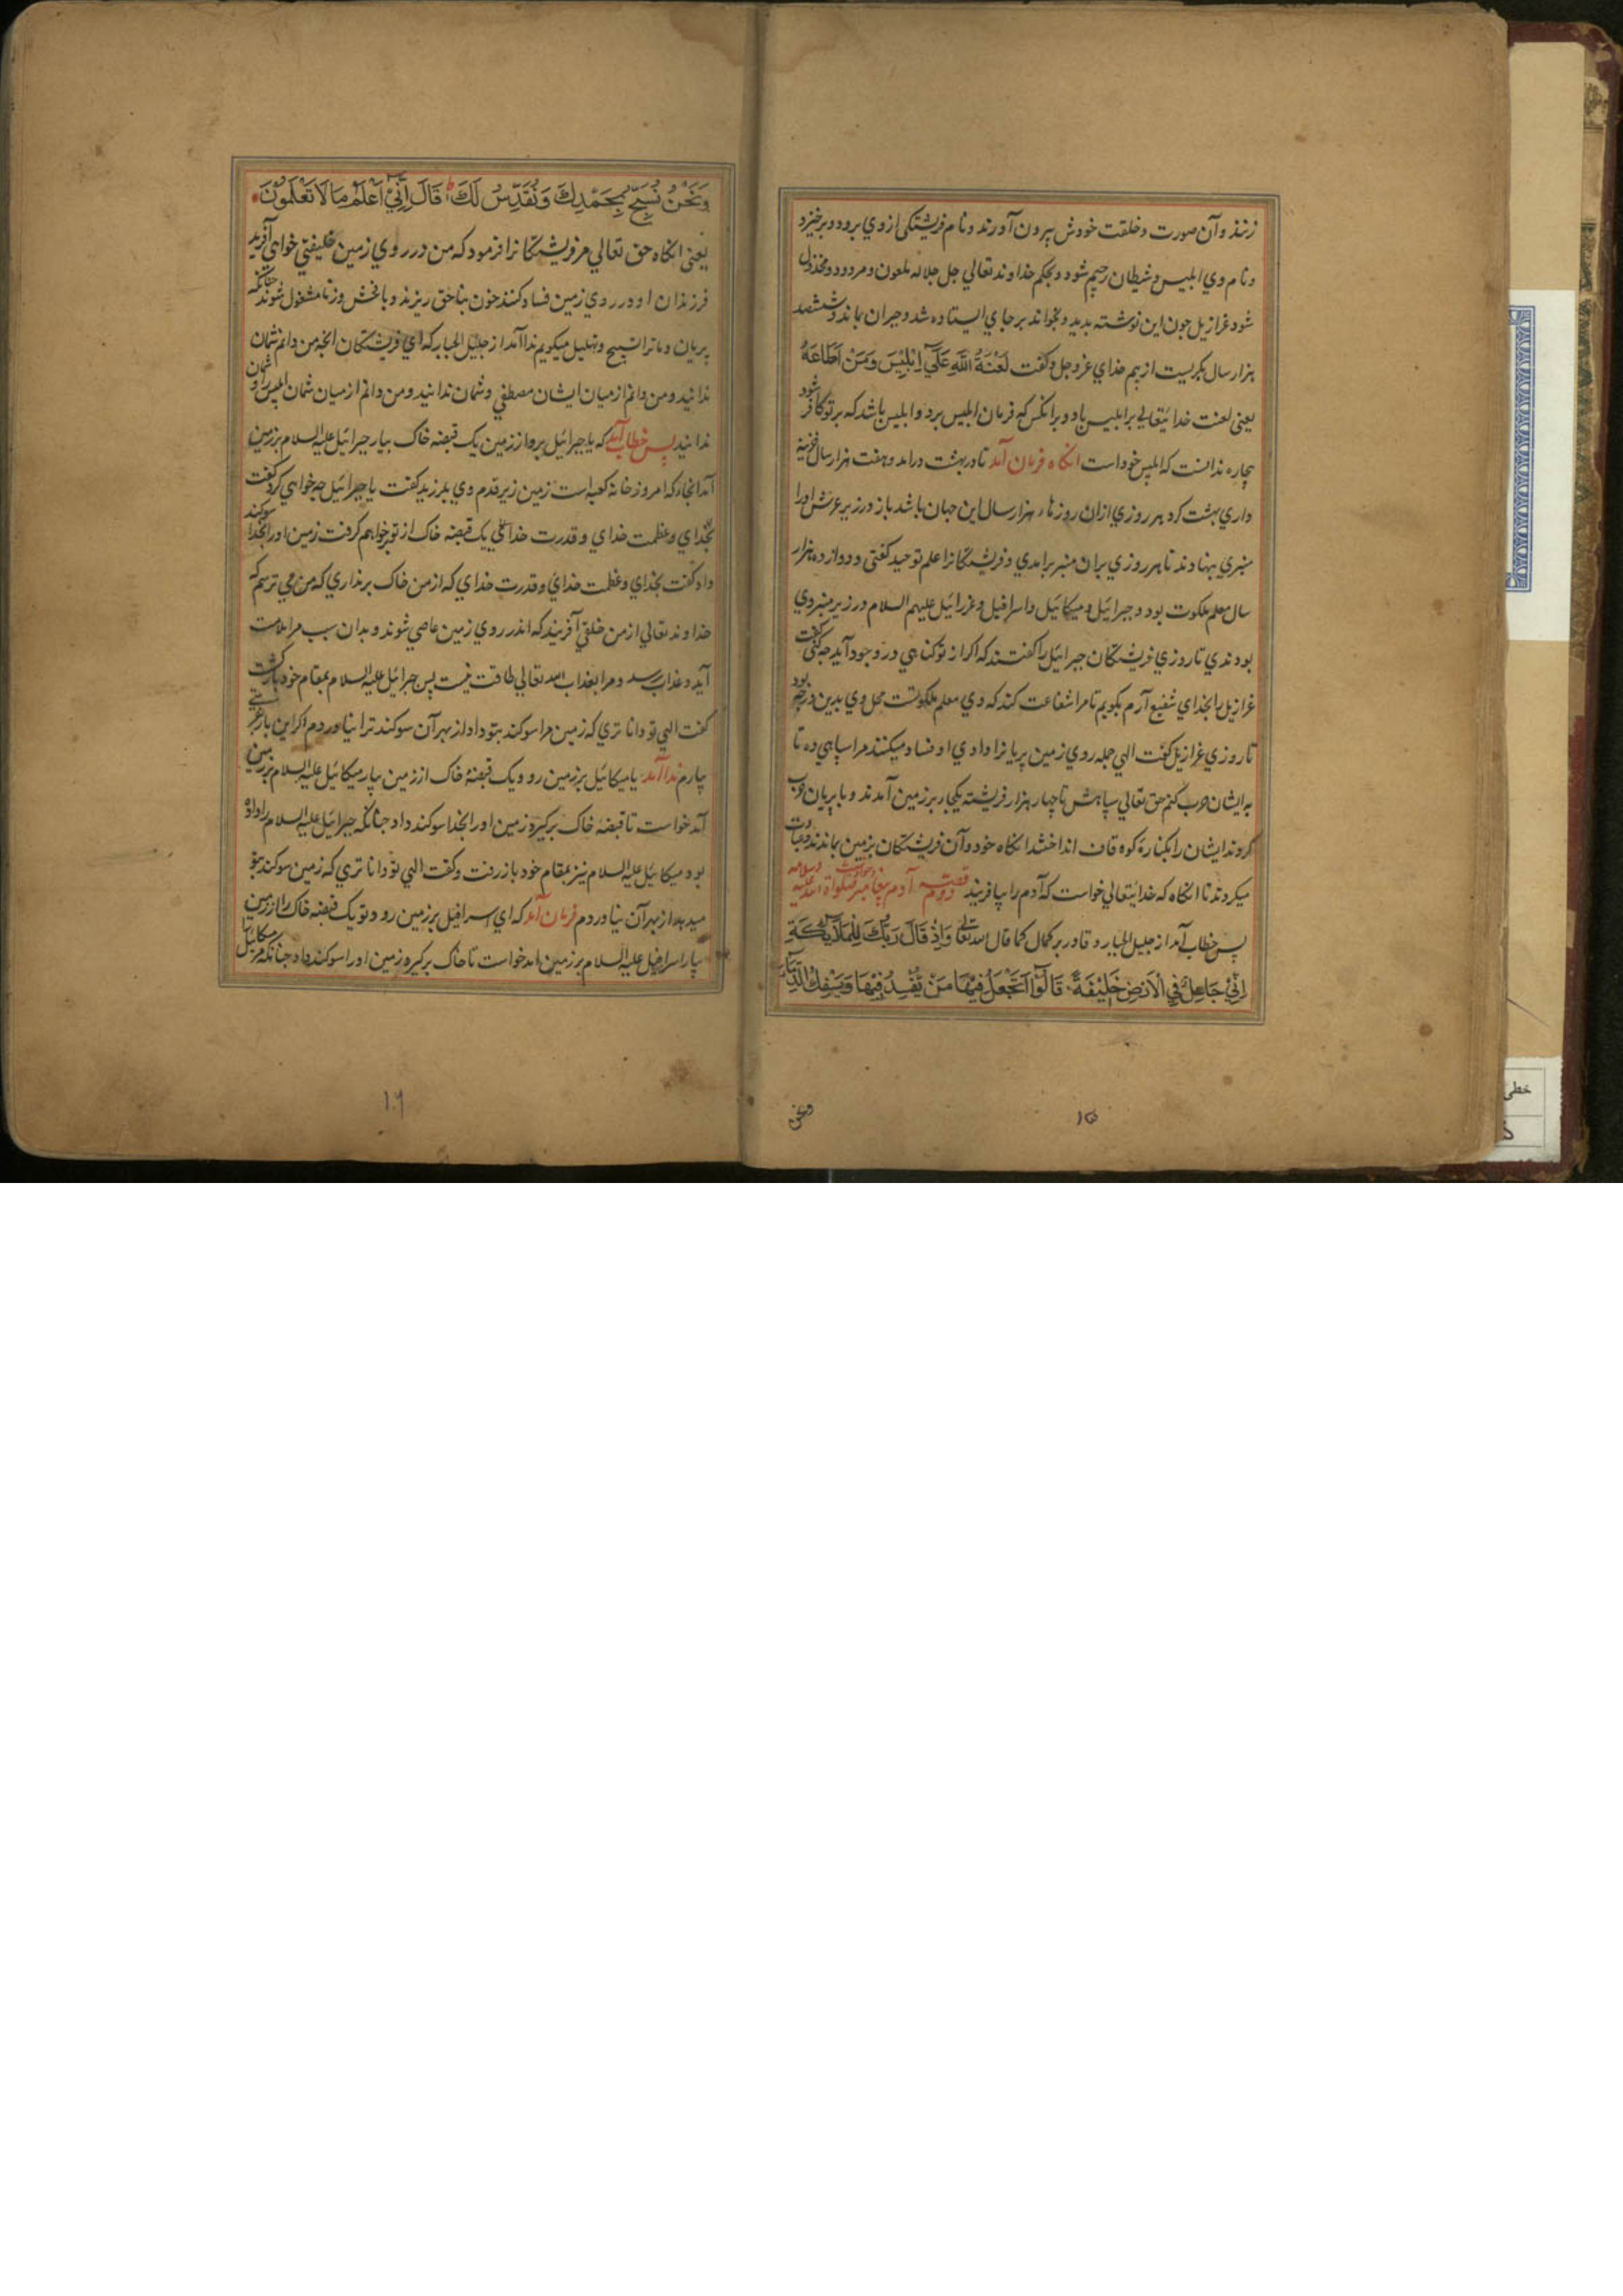 زنند و آن صورت و خلقت خودش بیرون آورند و نام فریشتکی از وي برود و برخیزد
و نام وي ابلیس و شیطان رجیم شود و بحکم خداوند تعالي جل جلاله ملعون و مردود و مخذول
شود عزازیل جون این نوشته بدید و بخواند بر جاي ایستاده شد و حیران بماند و ششصد
هزار سال بکریست از بیم خداي عزوجل و کفت لَعْنَةُ اللَّهِ عَلَي اِبْلِيْسَ وَمَنْ اَطَاعَهُ
یعنی لعنت خدایتعالي بر ابلیس باد و بر انکس که فرمان ابلیس برد و ابلیس باشد که بر تو کافر شود
بیچاره ندانست که ابلیس خود است انکاه فرمان آمد تا در بهشت درامد و هفت هزار سال خزینه
داري بهشت کرد هر روزي ازان روزها، هزار سال این جهان باشد باز در زیر عرش او را
منبري بنهادند تا هر روزي بران منبر برامدي و فریشتکانرا علم توحید کفتی و دوازده هزار
سال معلم ملکوت بود و جبرائیل و میکائیل و اسرافیل و عزرائیل علیهم السلام در زیر منبر وي
بودندي تا روزي فریشتکان جبرائیل را کفتند که اکر از تو کناهي در وجود آید چه کنی کفت
عزازیل را بخداي شفیع آرم بکویم تا مرا شفاعت کند که وي معلم ملکوتست محل وي بدین درجه بود
تا روزي عزازیل کفت الهي جمله روي زمین پریانرا دادي او فساد میکنند مرا سپاهي ده تا
به ایشان حرب کنم حق تعالي سپاهش تا چهار هزار فریشته یکبار بر زمین آمدند و با پریان حرب
کردند ایشان را بکنارۀ کوه قاف انداختند انکاه خود و آن فریشتکان بزمین بماندند و عبادت
میکردند تا انکاه که خدایتعالي خواست که آدم را بیافریند قصه دوم آدم پیغامبر صلواة الله علیه و سلامه
پس خطاب آمد از جلیل الجبار و قادر بر کمال کما قال الله تعا وَاِذْ قَالَ رَبُّكَ لِلْمَلَآئِكَةِ
اِنِّيْ جَاعِلٌ فِي الْاَرْضِ خَلِيْفَةً قَالُوْا اَتَجْعَلُ فِيْهَا مَنْ يُّفْسِدُ فِيْهَا وَيَسْفِكُ الدِّمَآءَ
ونحن
۱۵
وَنَحْنُ نُسَبِّحُ بِحَمْدِكَ وَنُقَدِّسُ لَكَ ط قَالَ اِنِّيْ اَعْلَمُ مَا لَا تَعْلَمُوْنَ
یعنی انکاه حق تعالي مر فریشتکانرا فرمود که من در روي زمین خلیفتي خواهي آفرید
فرزندان او در روي زمین فساد کنند خون بناحق ریزند و با فحش و زنا مشغول شوند چنانکه
پریان و ما ترا تسبیح و تهلیل میکویم ندا آمد از جلیل الجبار که اي فریشتکان انچه من دانم شمان
ندانید و من دانم از میان ایشان مصطفي و شمان ندانید و من دانم از میان شمان ابلیس را و شمان
ندانید پس خطاب آمد که یا جبرائیل برو از زمین یک قبضه خاک بیار جبرائیل علیه السلام بر زمین
آمد انجاء که امروز خانۀ کعبه است زمین زیر قدم وي بلرزید کفت یا جبرائیل چه خواهي کرد کفت
بخداي و عظمت خداي و قدرت خداي یک قبضه خاک از تو خواهم کرفت زمین او را بخدا سوکند
داد کفت بخداي و عظمت خداي و قدرت خداي که از من خاک برنداري که من مي ترسم که
خداوند تعالي از من خلقي آفریند که اندر روي زمین عاصي شوند و بدان سبب مرا ملامت
آید و عذاب رسد و مرا بعذاب الله تعالي طاقت نیست پس جبرائیل علیه السلام بمقام خود بازکشت
کفت الهي تو دانا تري که زمین مرا سوکند بتو داد از بهر آن سوکند ترا نیاوردم اکر این بار
بیارم ندا آمد یا میکائیل بر زمین رو و یک قبضۀ خاک از زمین بیار میکائیل علیه السلام بر زمین
آمد خواست تا قبضه خاک برکیرد زمین او را بخدا سوکند داد چنانکه جبرائیل علیه السلام را داده
بود میکائیل علیه السلام نیز بمقام خود باز رفت و کفت الهي تو دانا تري که زمین سوکند بتو
میدهد از بهر آن نیاوردم فرمان آمد که اي اسرافیل بر زمین رو و تو یک قبضه خاک را از زمین
بیار اسرافیل علیه السلام بر زمین امد خواست تا خاک برکیرد زمین او را سوکند داد چنانکه مر میکائیل
۱۶
خطی